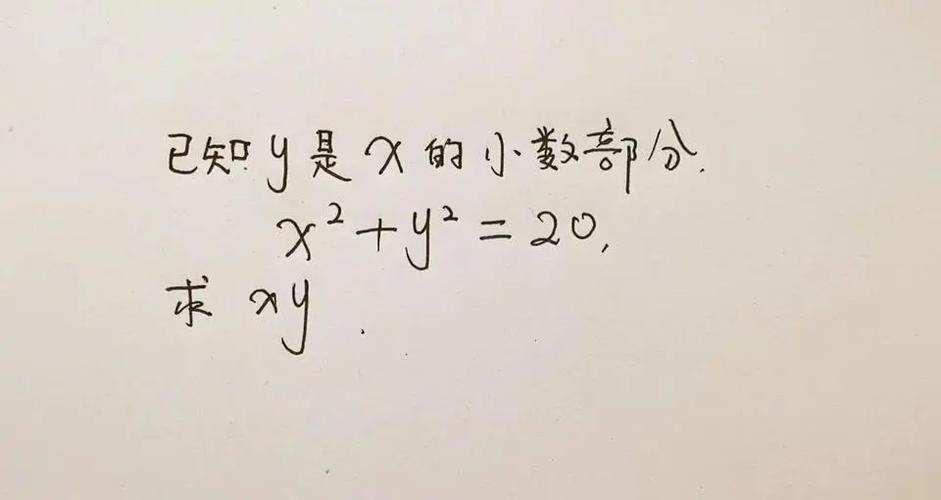 已知 y 是 x 的小数部分.
x² + y² = 20,
求 xy .